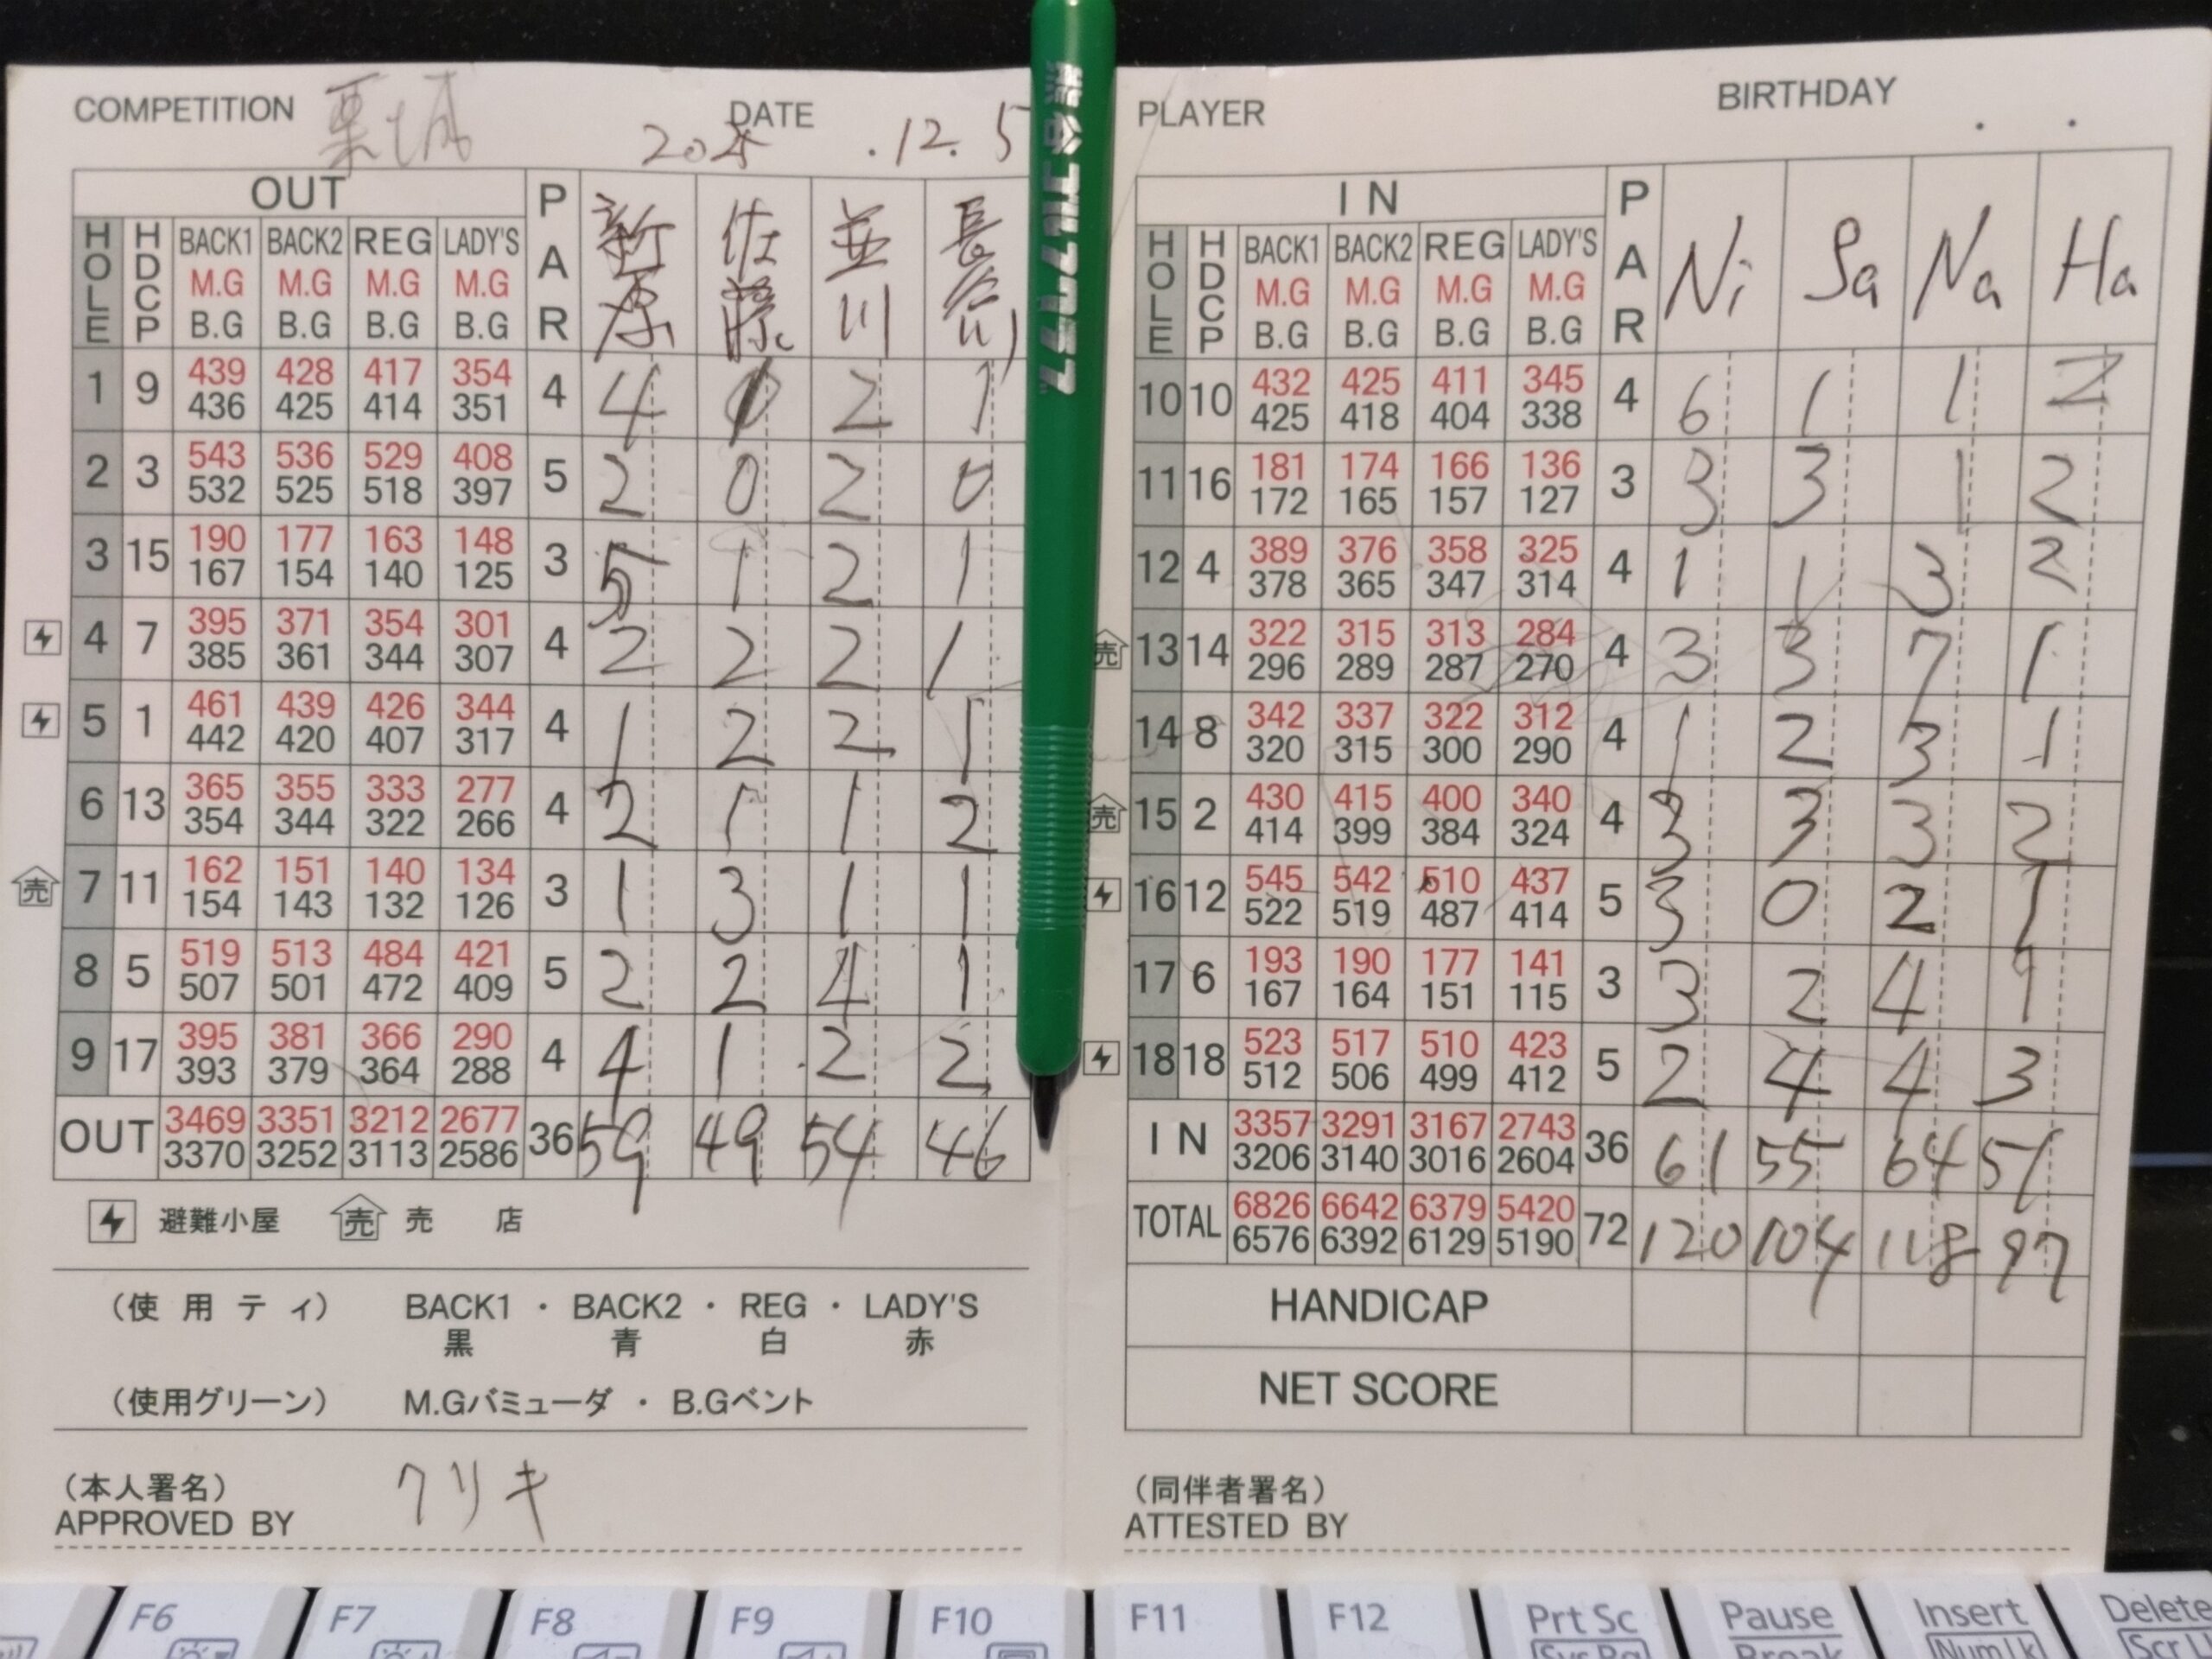 COMPETITION 栗城 DATE 2025 .12. 5
OUT P A R 新原 佐藤 並川 長谷川
HOLE HDCP BACK1 BACK2 REG LADY'S
M.G M.G M.G M.G
B.G B.G B.G B.G
1 9 439 428 417 354 4 4 1 2 1
436 425 414 351
2 3 543 536 529 408 5 2 0 2 0
532 525 518 397
3 15 190 177 163 148 3 5 1 2 1
167 154 140 125
4 7 395 371 354 301 4 2 2 2 1
385 361 344 307
5 1 461 439 426 344 4 1 2 2 1
442 420 407 317
6 13 365 355 333 277 4 2 1 1 2
354 344 322 266
売 7 11 162 151 140 134 3 1 3 1 1
154 143 132 126
8 5 519 513 484 421 5 2 2 4 1
507 501 472 409
9 17 395 381 366 290 4 4 1 2 2
393 379 364 288
OUT 3469 3351 3212 2677 36 59 49 54 46
3370 3252 3113 2586
避難小屋 売 売 店
（使 用 テ ィ） BACK1 ・ BACK2 ・ REG ・ LADY'S
黒 青 白 赤
（使用グリーン） M.Gバミューダ ・ B.Gベント
（本人署名） クリキ
APPROVED BY
熊谷ゴルフクラブ
PLAYER BIRTHDAY . .
IN P A R Ni Sa Na Ha
HOLE HDCP BACK1 BACK2 REG LADY'S
M.G M.G M.G M.G
B.G B.G B.G B.G
10 10 432 425 411 345 4 6 1 1 2
425 418 404 338
11 16 181 174 166 136 3 3 3 1 2
172 165 157 127
12 4 389 376 358 325 4 1 1 3 2
378 365 347 314
売 13 14 322 315 313 284 4 3 3 7 1
296 289 287 270
14 8 342 337 322 312 4 1 2 3 1
320 315 300 290
売 15 2 430 415 400 340 4 3 3 3 2
414 399 384 324
16 12 545 542 510 437 5 3 0 2 1
522 519 487 414
17 6 193 190 177 141 3 3 2 4 1
167 164 151 115
18 18 523 517 510 423 5 2 4 4 3
512 506 499 412
IN 3357 3291 3167 2743 36 61 55 64 51
3206 3140 3016 2604
TOTAL 6826 6642 6379 5420 72 120 104 118 97
6576 6392 6129 5190
HANDICAP
NET SCORE
（同伴者署名）
ATTESTED BY
F6 F7 F8 F9 F10 F11 F12 Prt Sc Pause Insert Delete